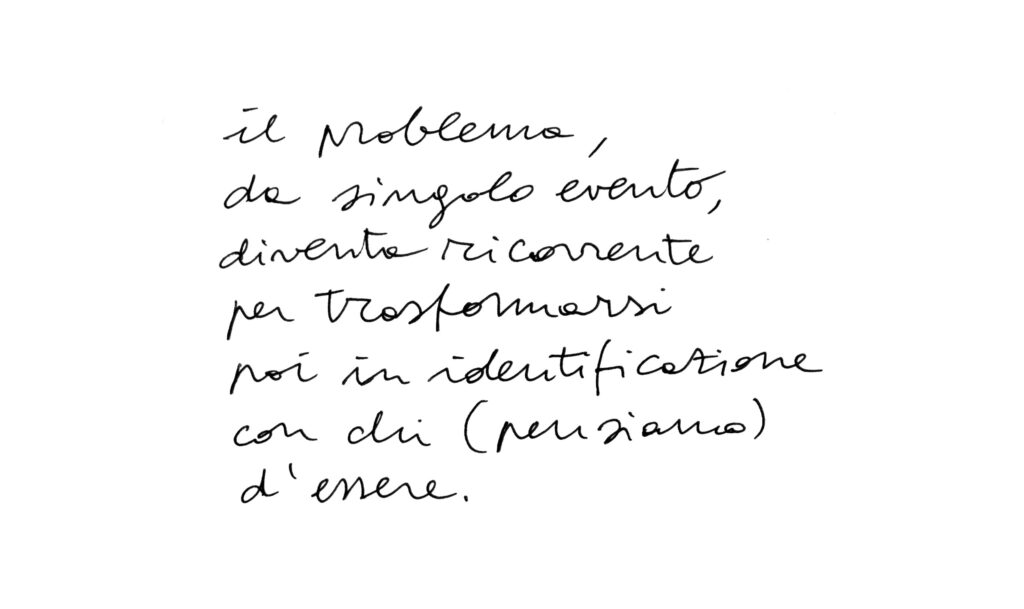 il problema,
da singolo evento,
diventa ricorrente
per trasformarsi
poi in identificazione
con chi (pensiamo)
d'essere.